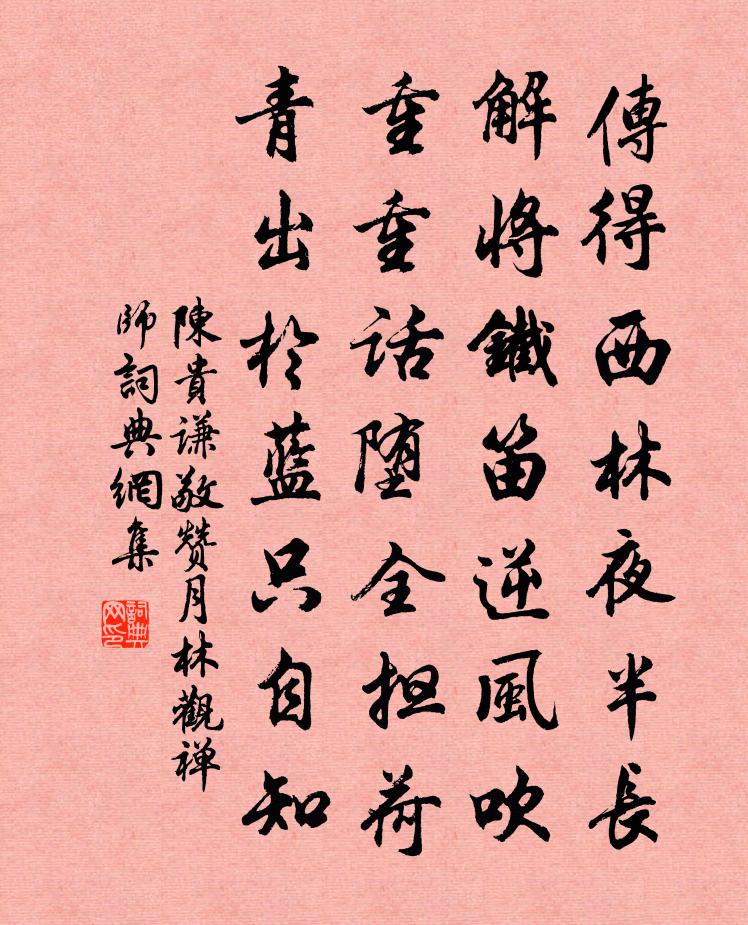 傳得西林夜半長
解將鐵笛逆風吹
重重話堕全担荷
青出於藍只自知
陳貴謙敬赞月林觀禅
師詞典網集
詞典网印